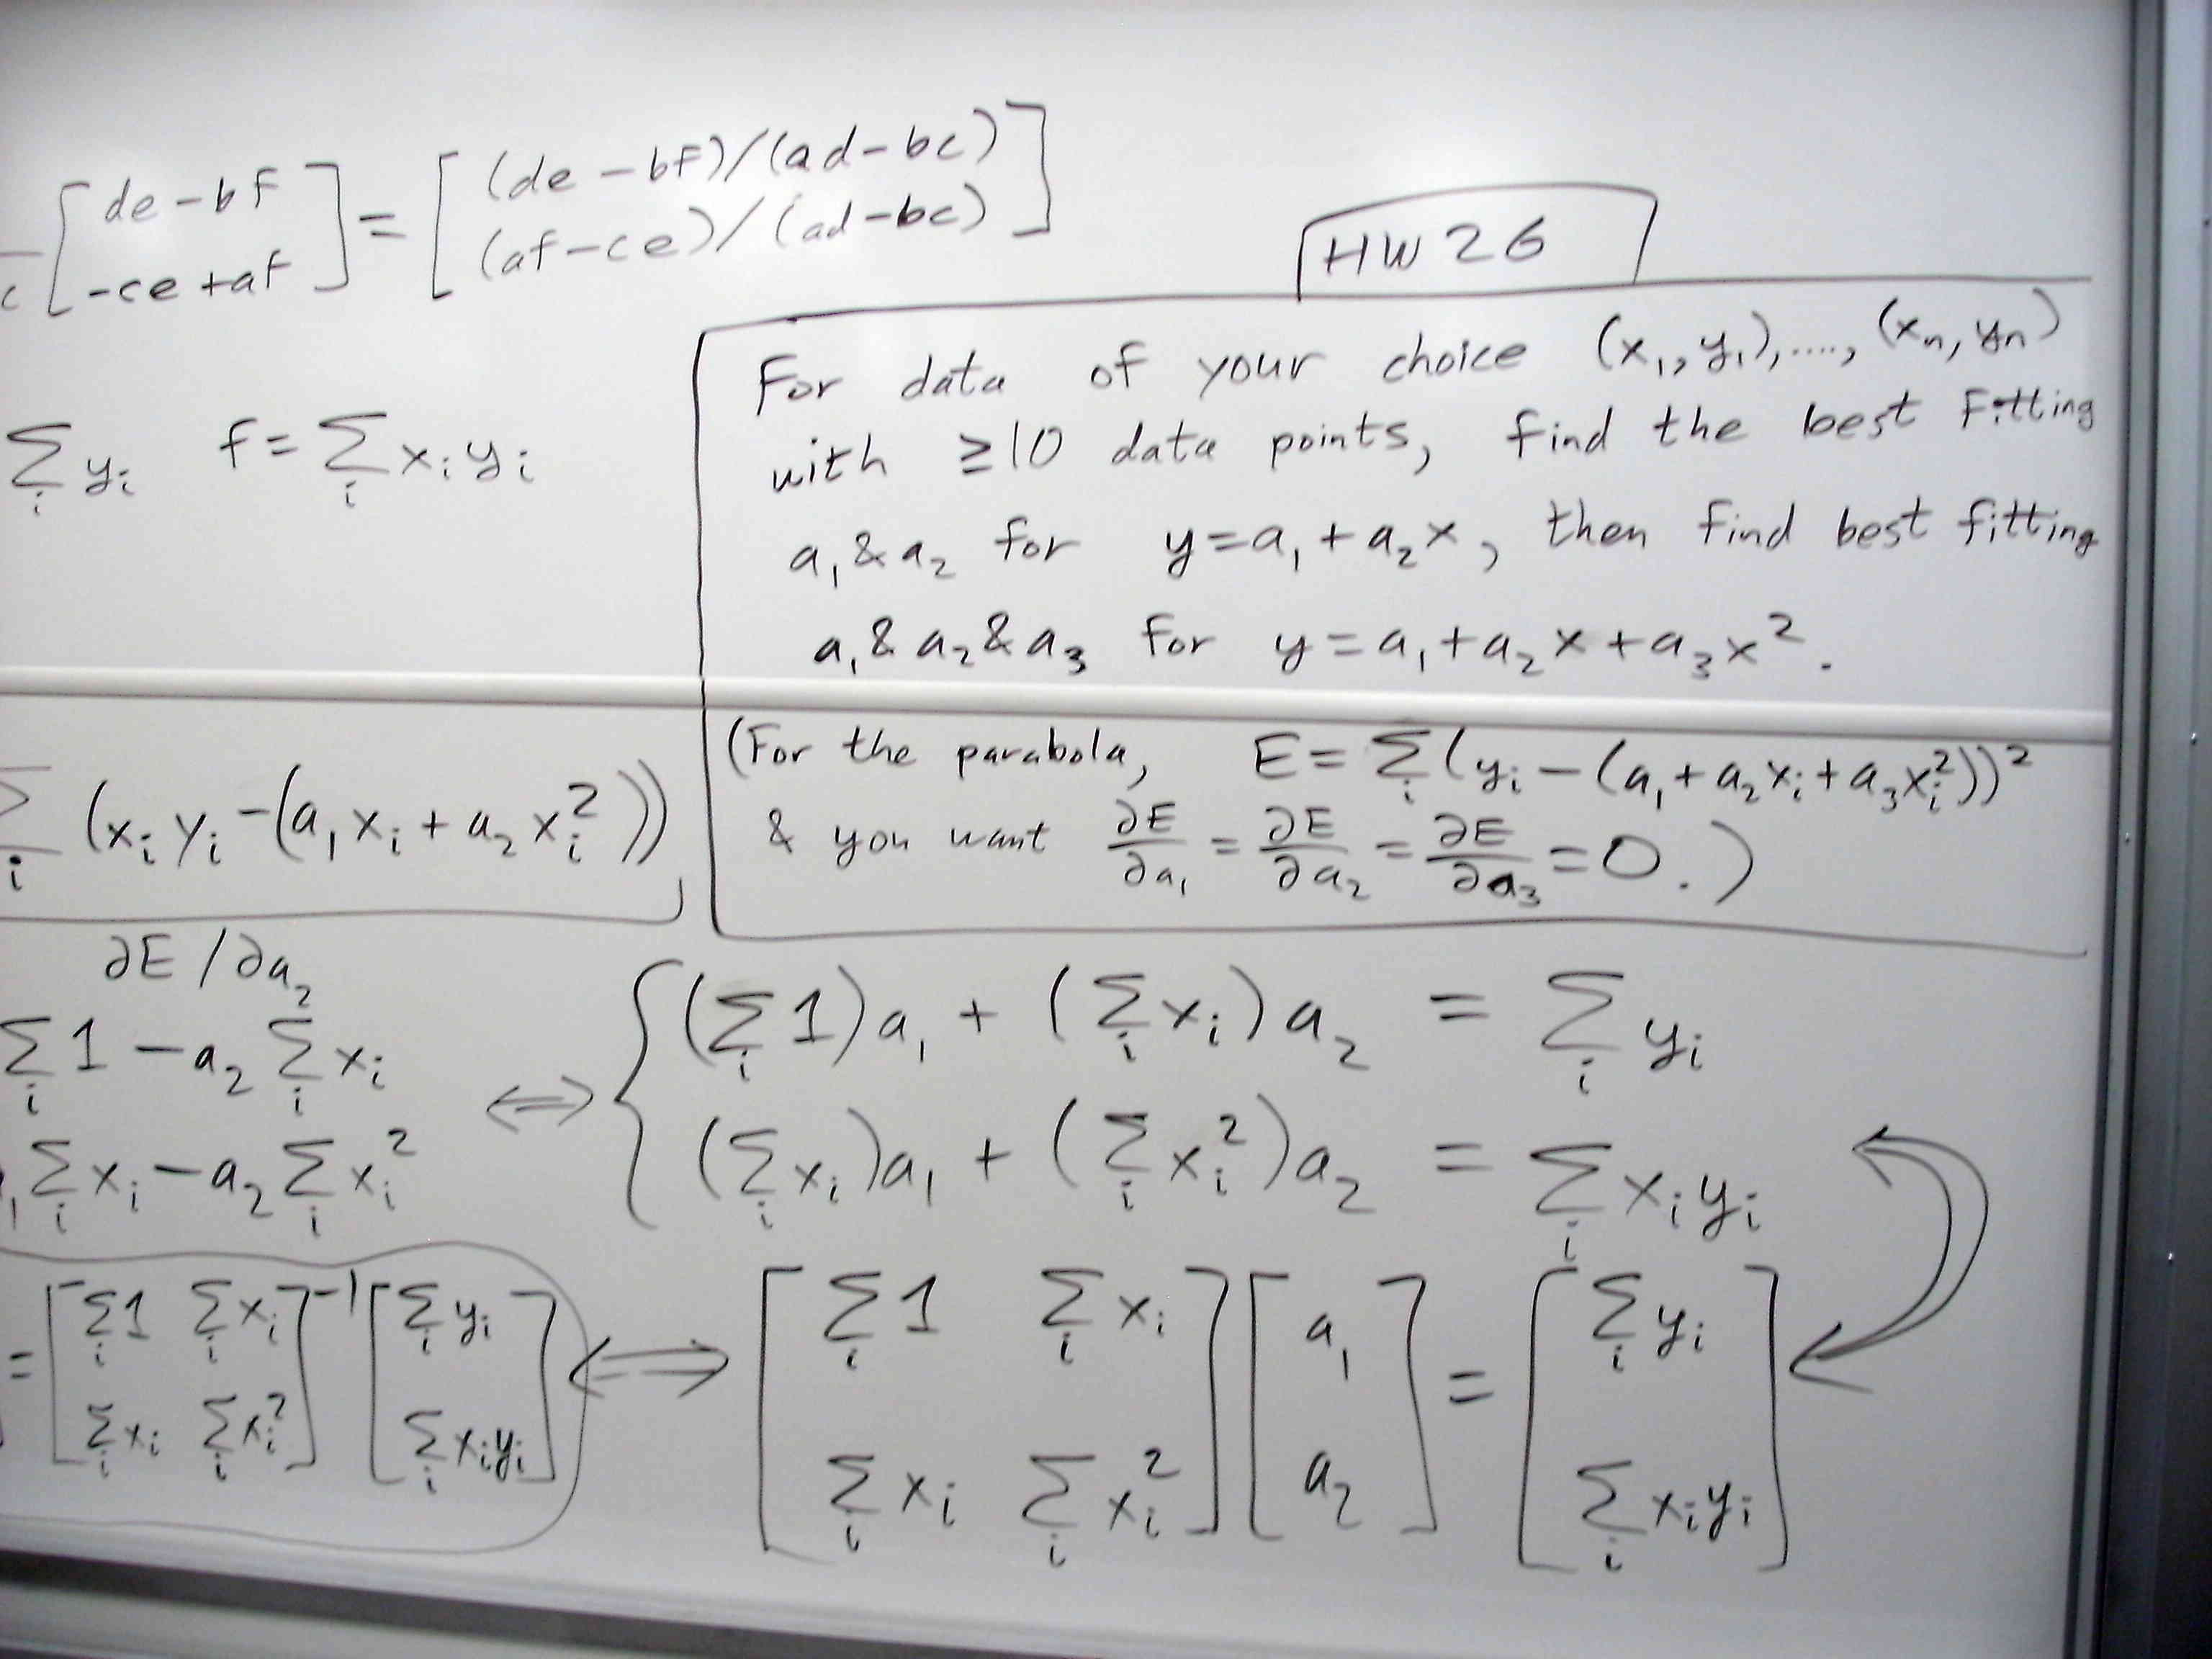 [de-bf
-ce+af] = [(de-bf)/(ad-bc)
(af-ce)/(ad-bc)]
c
∑_i y_i   f = ∑_i x_i y_i
HW 26
For data of your choice (x_1, y_1), ...., (x_n, y_n)
with ≥10 data points, find the best fitting
a_1 & a_2 for y = a_1 + a_2 x, then find best fitting
a_1 & a_2 & a_3 for y = a_1 + a_2 x + a_3 x^2.
(For the parabola, E = ∑_i (y_i - (a_1 + a_2 x_i + a_3 x_i^2))^2
& you want ∂E/∂a_1 = ∂E/∂a_2 = ∂E/∂a_3 = 0.)
∑_i (x_i y_i - (a_1 x_i + a_2 x_i^2))
∂E/∂a_2
∑_i 1 - a_2 ∑_i x_i
∑_i x_i - a_2 ∑_i x_i^2
⇔ { (∑_i 1) a_1 + (∑_i x_i) a_2 = ∑_i y_i
(∑_i x_i) a_1 + (∑_i x_i^2) a_2 = ∑_i x_i y_i
= [∑_i 1  ∑_i x_i
∑_i x_i  ∑_i x_i^2]^-1 [∑_i y_i
∑_i x_i y_i]
⇔ [∑_i 1  ∑_i x_i
∑_i x_i  ∑_i x_i^2] [a_1
a_2] = [∑_i y_i
∑_i x_i y_i]